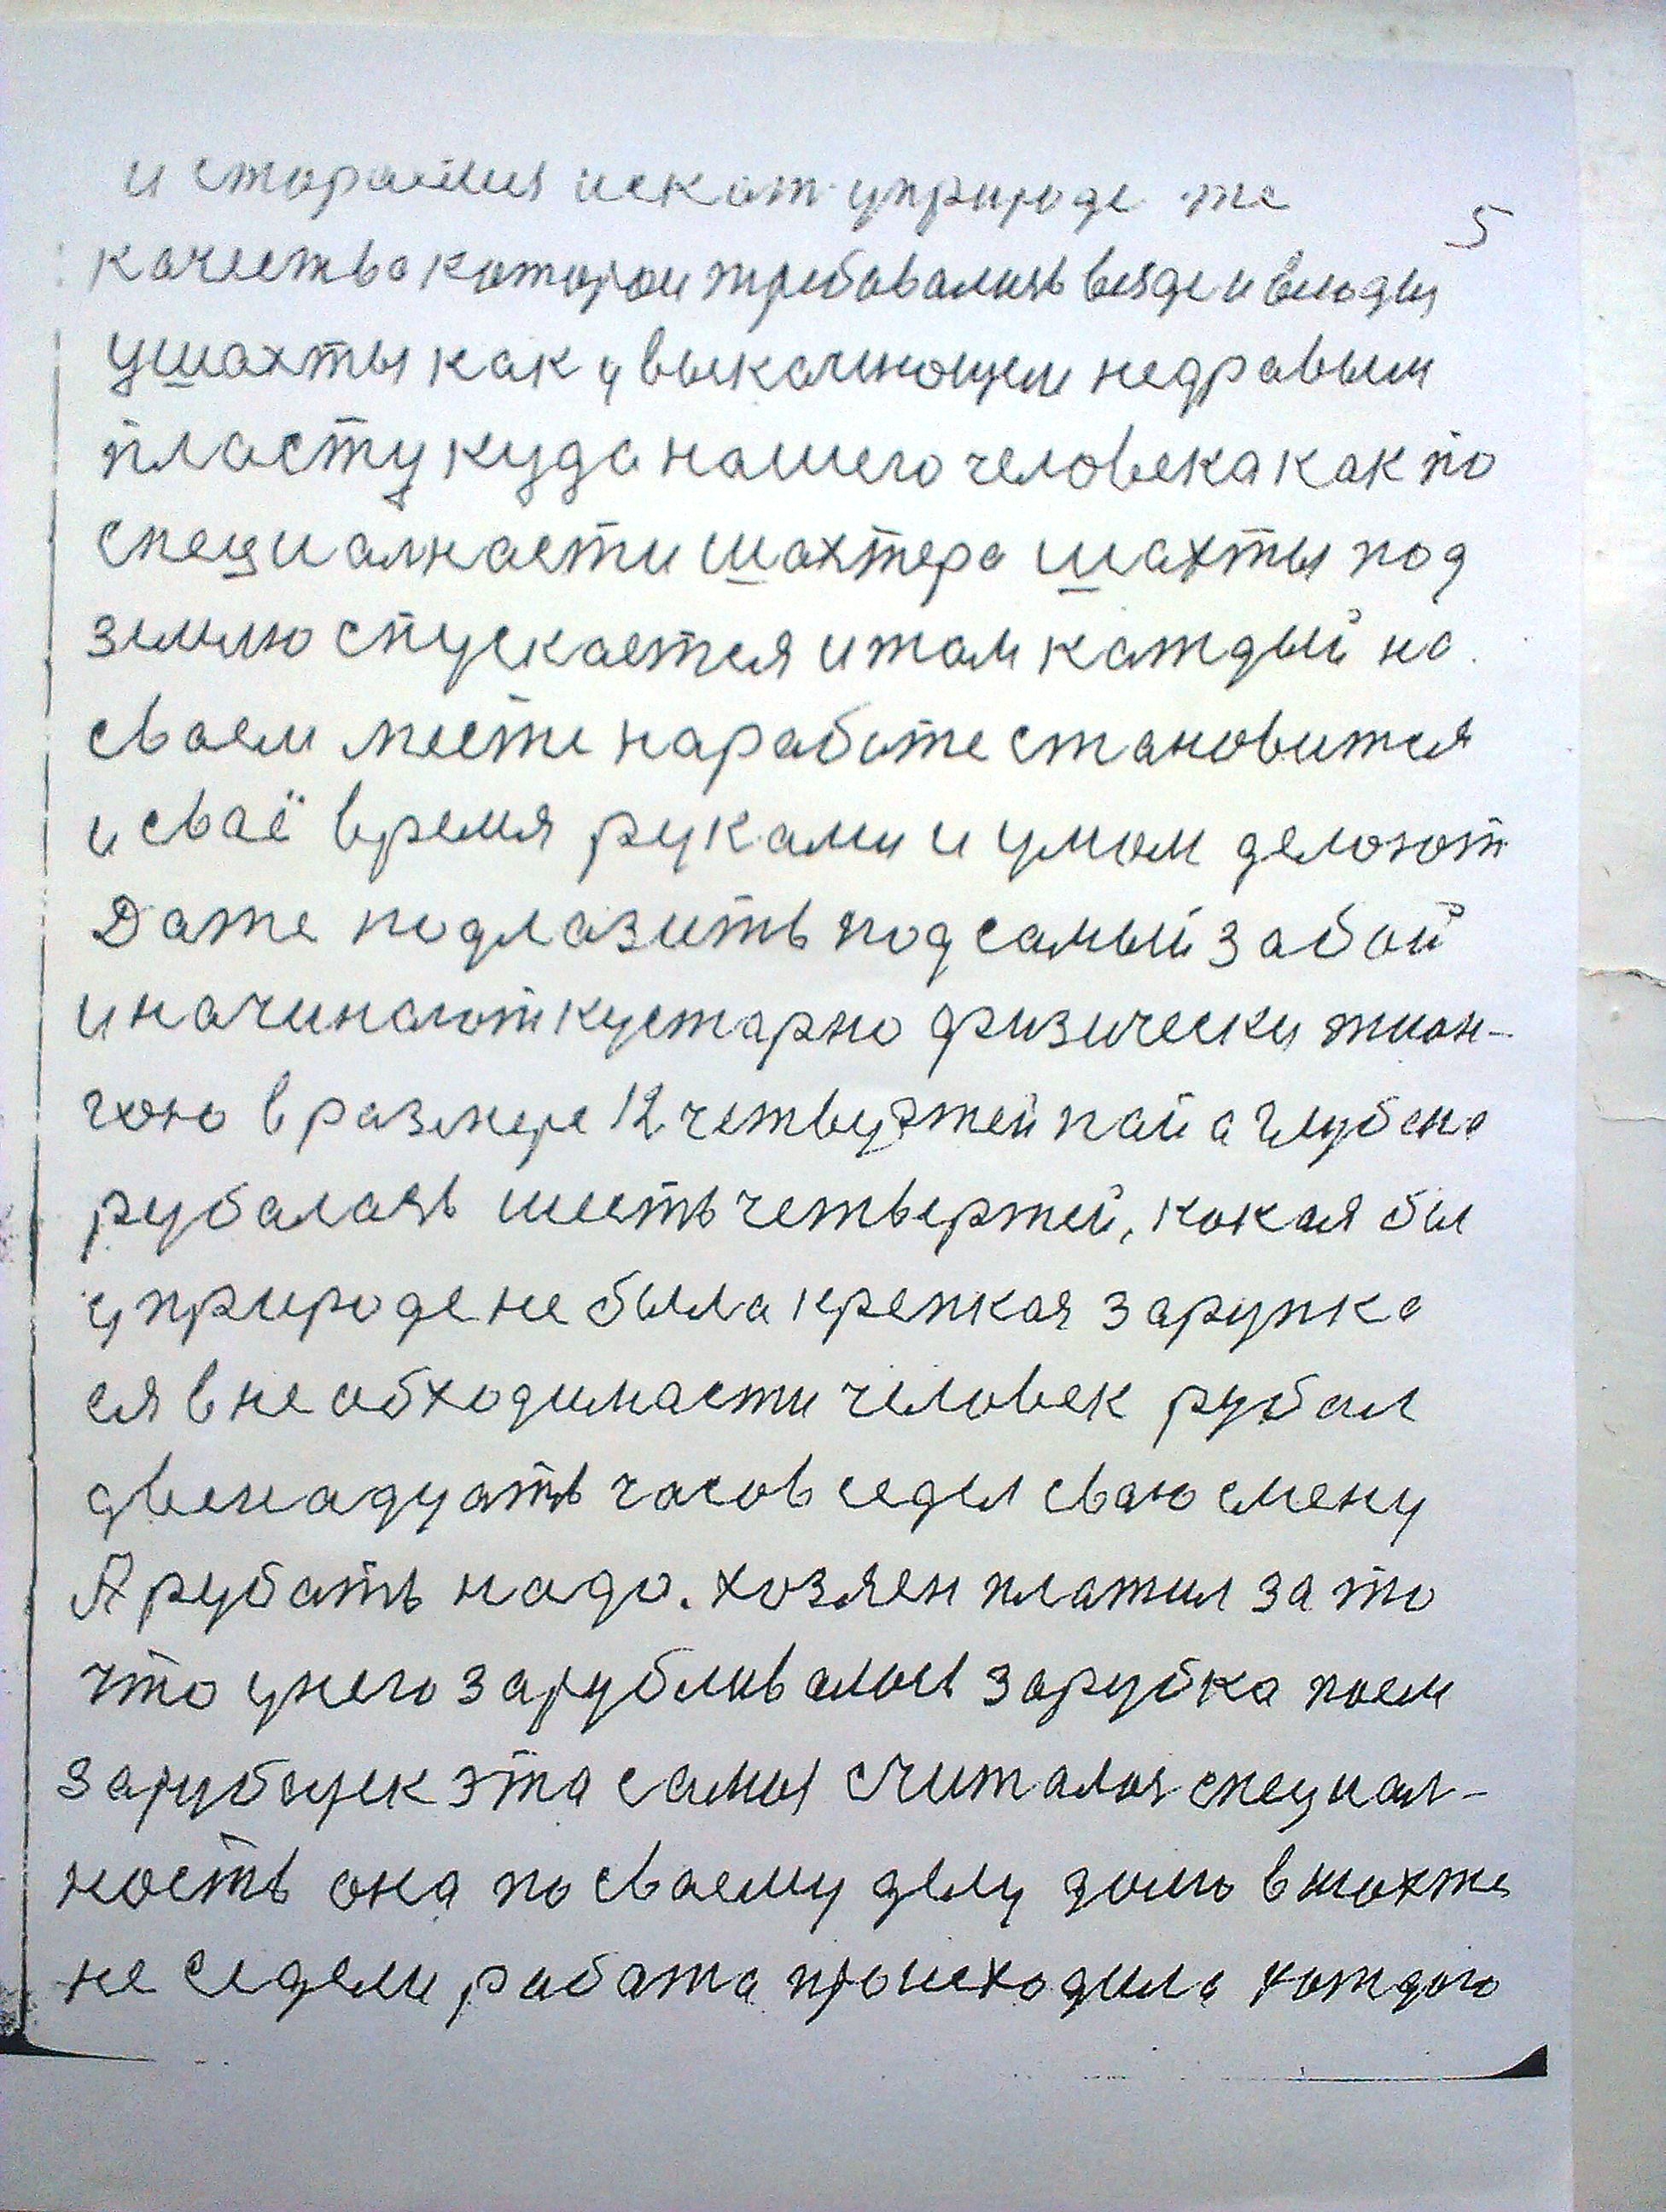 и старался искат уприроде те
5
качества котораи требовались везде и всюды
ушахты как у выкачинющем недравым
пласту куда нашего человека как по
специалнасти шахтера шахты под
землю спускается итам каждый на
сваем месте наработе становится
и сваё время руками и умом делоют
Даже подлазить под самый забой
иначинают кустарно физически тион-
гою в размере 12 четвертей пай а глубено
рубалась шесть четвертей, какая бы
уприроде не была крепкая зарупка
ся в не обходимасти человек рубал
двенадцать часов седел сваю смену
А рубать надо. хозяен платил за то
что унего зарубливалось зарубка поем
зарубщек эта самыя считалоя специал-
ность она по сваему делу долго вшахте
не седели работа происходила каждого